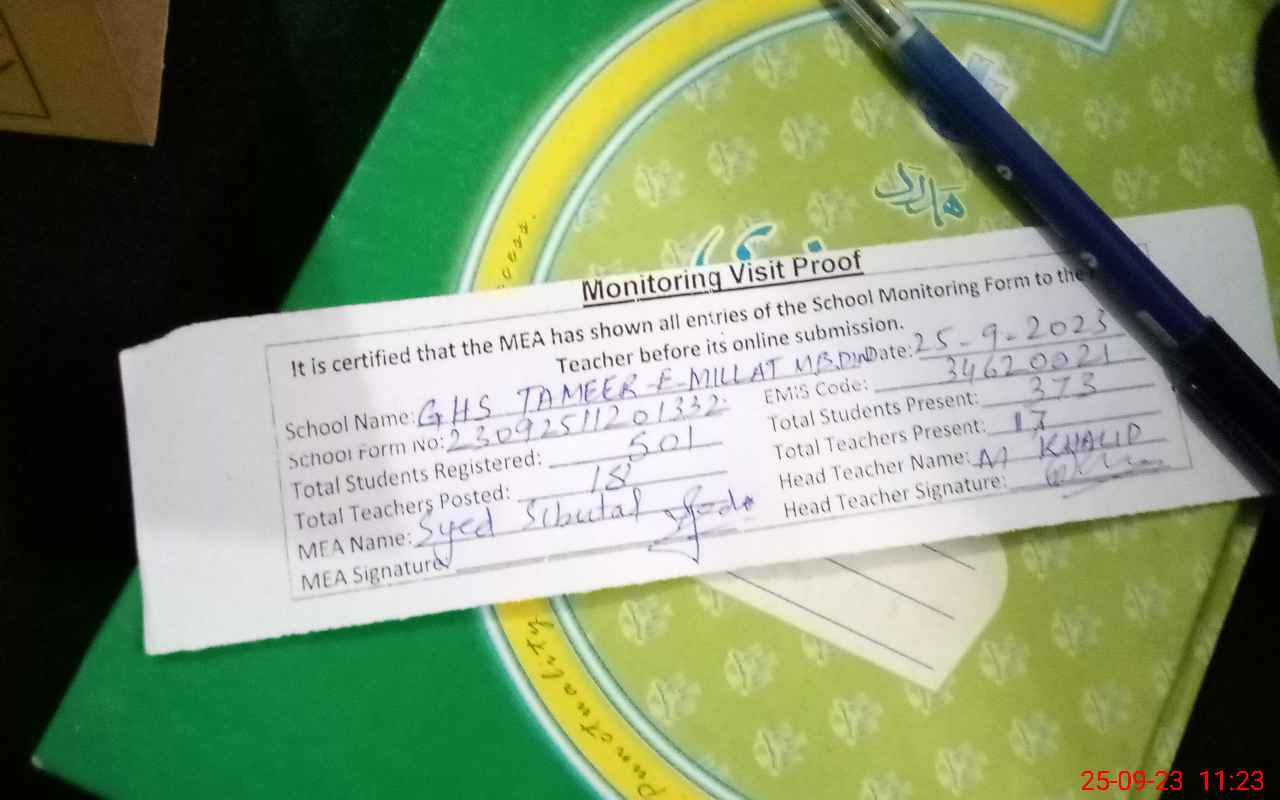 Monitoring Visit Proof
It is certified that the MEA has shown all entries of the School Monitoring Form to the
Teacher before its online submission.
School Name: GHS TAMEER-E-MILLAT M.B.DIN Date: 25-9-2023
School Form No: 23092511201332 EMIS Code: 34620021
Total Students Registered: 501 Total Students Present: 373
Total Teachers Posted: 18 Total Teachers Present: 17
MEA Name: Syed Sibutal Head Teacher Name: M KHALID
MEA Signature: Head Teacher Signature:
Punctuality
25-09-23 11:23